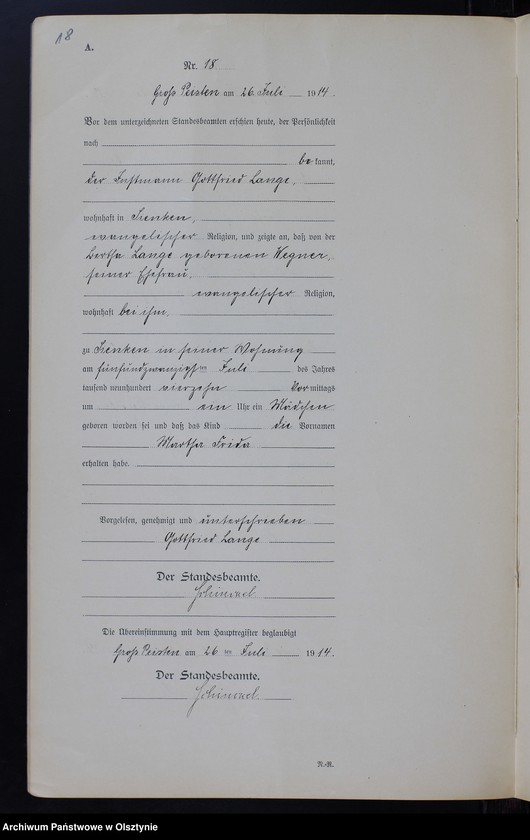 18
A.
Nr. 18
Groß Peisten am 26. Juli 1914.
Vor dem unterzeichneten Standesbeamten erschien heute, der Persönlichkeit
nach
bekannt,
der Instmann Gottfried Lange,
wohnhaft in
evangelischer Religion, und zeigte an, daß von der
Bertha Lange geborenen Wegner,
seiner Ehefrau,
evangelischer Religion,
wohnhaft bei ihm,
zu in seiner Wohnung
am fünfundzwanzigsten Juli des Jahres
tausend neunhundert vierzehn Vormittags
um ein Uhr ein Mädchen
geboren worden sei und daß das Kind die Vornamen
Martha Frida
erhalten habe.
Vorgelesen, genehmigt und unterschrieben
Gottfried Lange
Der Standesbeamte.
Die Übereinstimmung mit dem Hauptregister beglaubigt
Groß Peisten am 26 ten Juli 1914.
Der Standesbeamte.
N.-R.
Archiwum Państwowe w Olsztynie